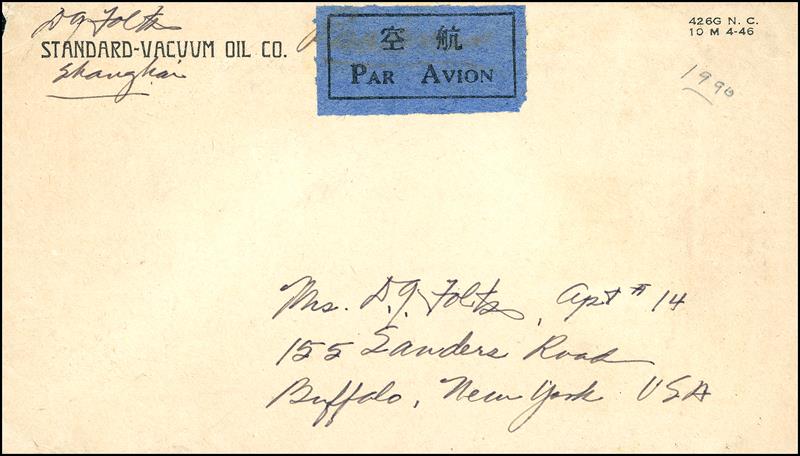 D.J. Foltz
STANDARD-VACUUM OIL CO.
Shanghai
空 航
PAR AVION
426G N. C.
10 M 4-46
1990
Mrs. D.J. Foltz, Apt # 14
155 Sanders Road
Buffalo, New York USA